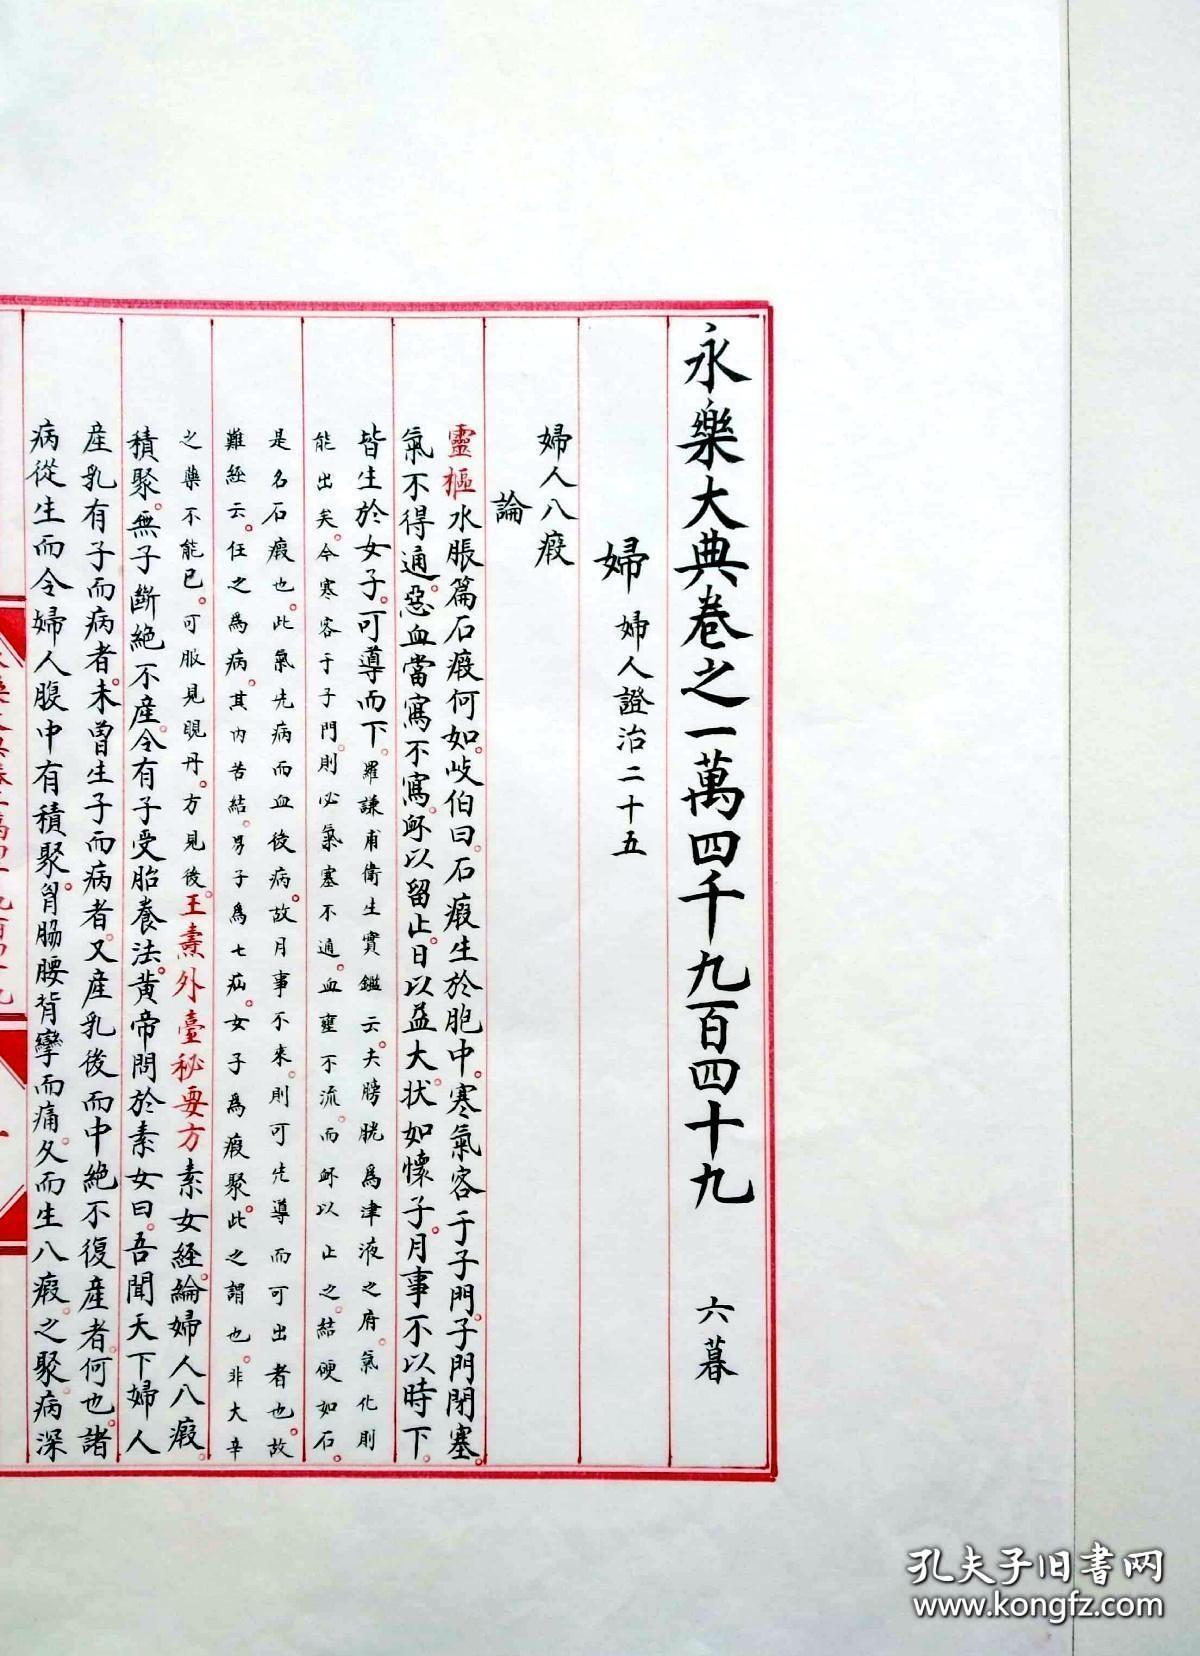 永樂大典卷之一萬四千九百四十九 六暮
婦 婦人證治二十五
婦人八瘕
論
靈樞水脹篇石瘕何如。岐伯曰。石瘕生於胞中。寒氣客于子門。子門閉塞。
氣不得通。惡血當寫不寫。衃以留止。日以益大。狀如懷子。月事不以時下。
皆生於女子。可導而下。羅謙甫衛生寶鑑云。夫膀胱為津液之府。氣化則
能出矣。今寒客于子門。則必氣塞不通。血壅不流。而衃以止之。結硬如石。
是名石瘕也。此氣先病而血後病。故月事不來。則可先導而可出者也。故
難經云。任之為病。其內苦結。男子為七疝。女子為瘕聚。此之謂也。非大辛
之藥不能已。可服見晛丹。方見後。王燾外臺秘要方素女經。論婦人八瘕。
積聚。無子斷絕不產。令有子受胎養法。黄帝問於素女曰。吾聞天下婦人
産乳有子而病者。未曾生子而病者。又産乳後而中絶不復産者。何也。諸
病從生而令婦人腹中有積聚。胷腸腰背攣而痛。久而生八瘕。之聚。病深
孔夫子旧书网
www.kongfz.com